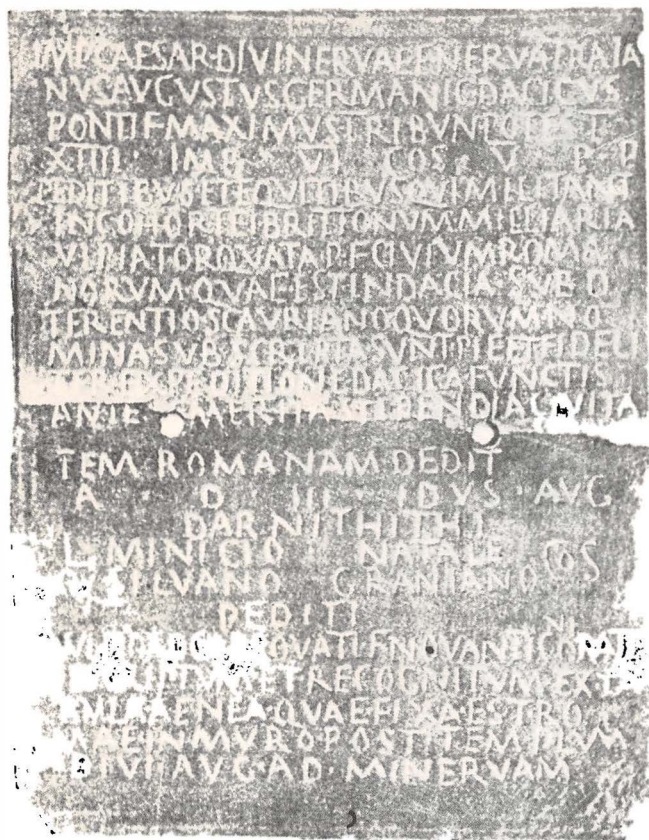 IMP CAESAR·DIVI NERVAE F NERVA TRAIA
NVS AVGVSTVS GERMANIC DACICVS
PONTIF MAXIMVS TRIBVNIC POTESTAT
XIIII · IMP · VI COS · V P P
PEDITIBVS ET EQVITIBVS QVI MILITANT
IN COHORTE I BRITTONVM MILLIARIA
VLPIA TORQVATA P F CIVIVM ROMA
NORVM QVAE EST IN DACIA SVB D
TERENTIO SCAVRIANO QVORVM NO
MINA SVBSCRIPTA SVNT PIE ET FIDELI
EXPEDITIONE DACICA FVNCTIS
ANTE EMERITA STIPENDIA CIVITA
TEM ROMANAM DEDIT
A · D · III · IDVS · AVG
DARNITHITHI
L MINICIO NATALE COS
SILVANO GRANIANO
PEDITI
OVATI F NOVANTICONI
ET RECOGNITVM EX T
ABVLA AENEA·QVAE FIXA EST RO
MAE IN MVRO POST TEMPLVM
DIVI AVG·AD·MINERVAM